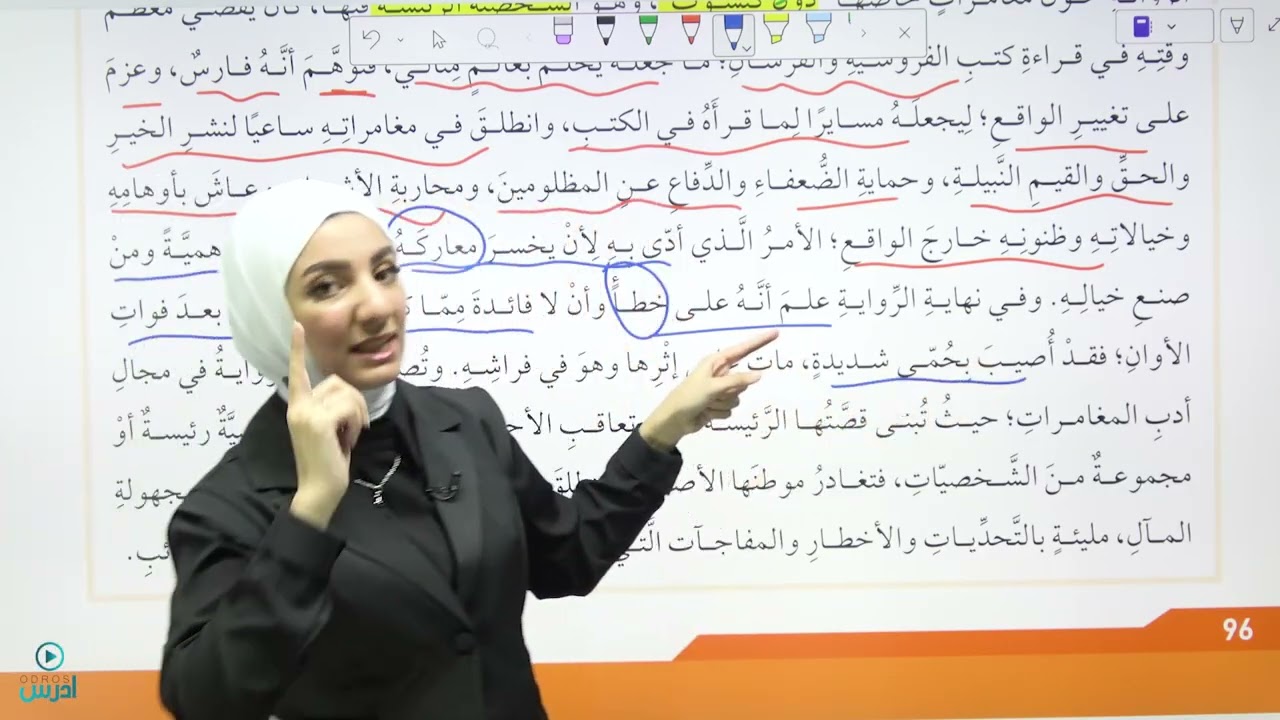 دون كيشوت وهو الشخصية الرئيسة فيها، كان يقضي معظم
وقتِهِ في قراءةِ كتبِ الفروسيّةِ والفرسانِ؛ ما جعلَهُ يحلمُ بعالمٍ مِثاليٍّ، فتوهَّمَ أنَّهُ فارسٌ، وعزمَ
على تغييرِ الواقعِ؛ لِيجعلَهُ مسايرًا لِما قرأَهُ في الكتبِ، وانطلقَ في مغامراتِهِ ساعيًا لنشرِ الخيرِ
والحقِّ والقيمِ النَّبيلةِ، وحمايةِ الضُّعفاءِ والدِّفاعِ عنِ المظلومينَ، ومحاربةِ عاشَ بأوهامِهِ
وخيالاتِهِ وظنونِهِ خارجَ الواقعِ؛ الأمرُ الَّذي أدّى بهِ لِأنْ يخسرَ معاركَهُ ومنْ
صنعِ خيالِهِ. وفي نهايةِ الرِّوايةِ علمَ أنَّهُ على خطأٍ وأنْ لا فائدةَ مِمّا بعدَ فواتِ
الأوانِ؛ فقدْ أُصيبَ بحُمّى شديدةٍ، ماتَ إثْرِها وهوَ في فراشِهِ. في مجالِ
أدبِ المغامراتِ؛ حيثُ تُبنى قصَّتُها الرَّئيسةُ تعاقبِ رئيسةٌ أوْ
مجموعةٌ منَ الشَّخصيّاتِ، فتغادرُ موطنَها
المآلِ، مليئةٍ بالتَّحدِّياتِ والأخطارِ والمفاجآت الَّتي
96
ODROS
ادرس